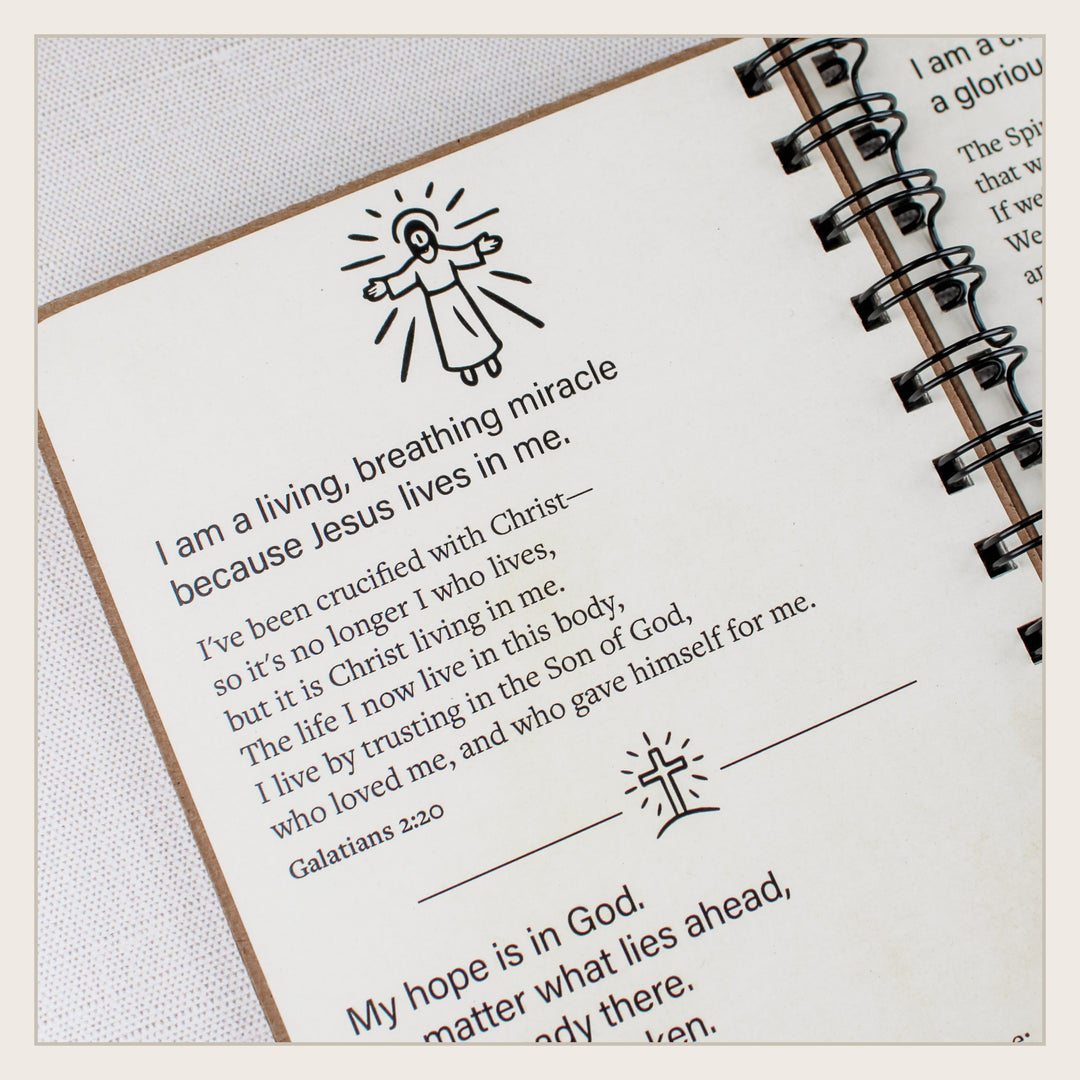 I am a living, breathing miracle
because Jesus lives in me.
I've been crucified with Christ—
so it's no longer I who lives,
but it is Christ living in me.
The life I now live in this body,
I live by trusting in the Son of God,
who loved me, and who gave himself for me.
Galatians 2:20
My hope is in God.
matter what lies ahead,
there.
I am a
a
The
that
If we
We